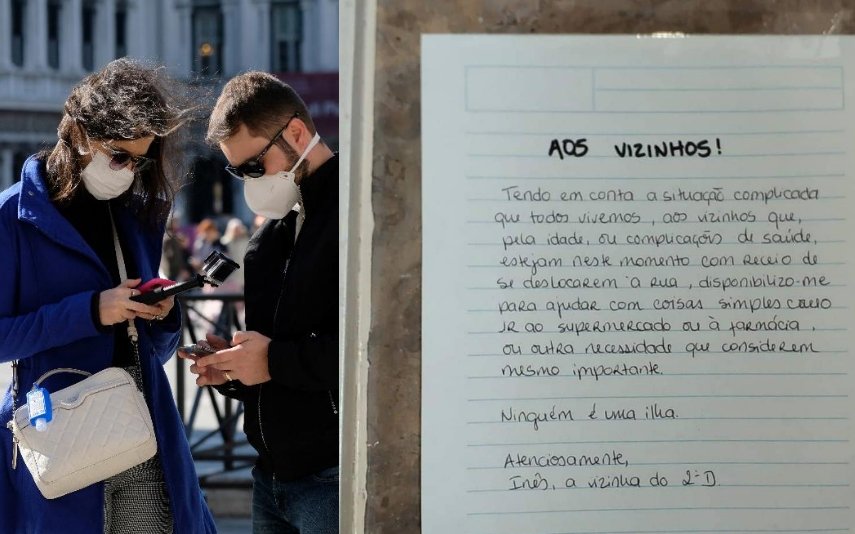 AOS VIZINHOS!
Tendo em conta a situação complicada
que todos vivemos, aos vizinhos que,
pela idade, ou complicações de saúde,
estejam neste momento com receio de
se deslocarem à rua, disponibilizo-me
para ajudar com coisas simples como
ir ao supermercado ou à farmácia,
ou outra necessidade que considerem
mesmo importante.
Ninguém é uma ilha.
Atenciosamente,
Inês, a vizinha do 2º D.